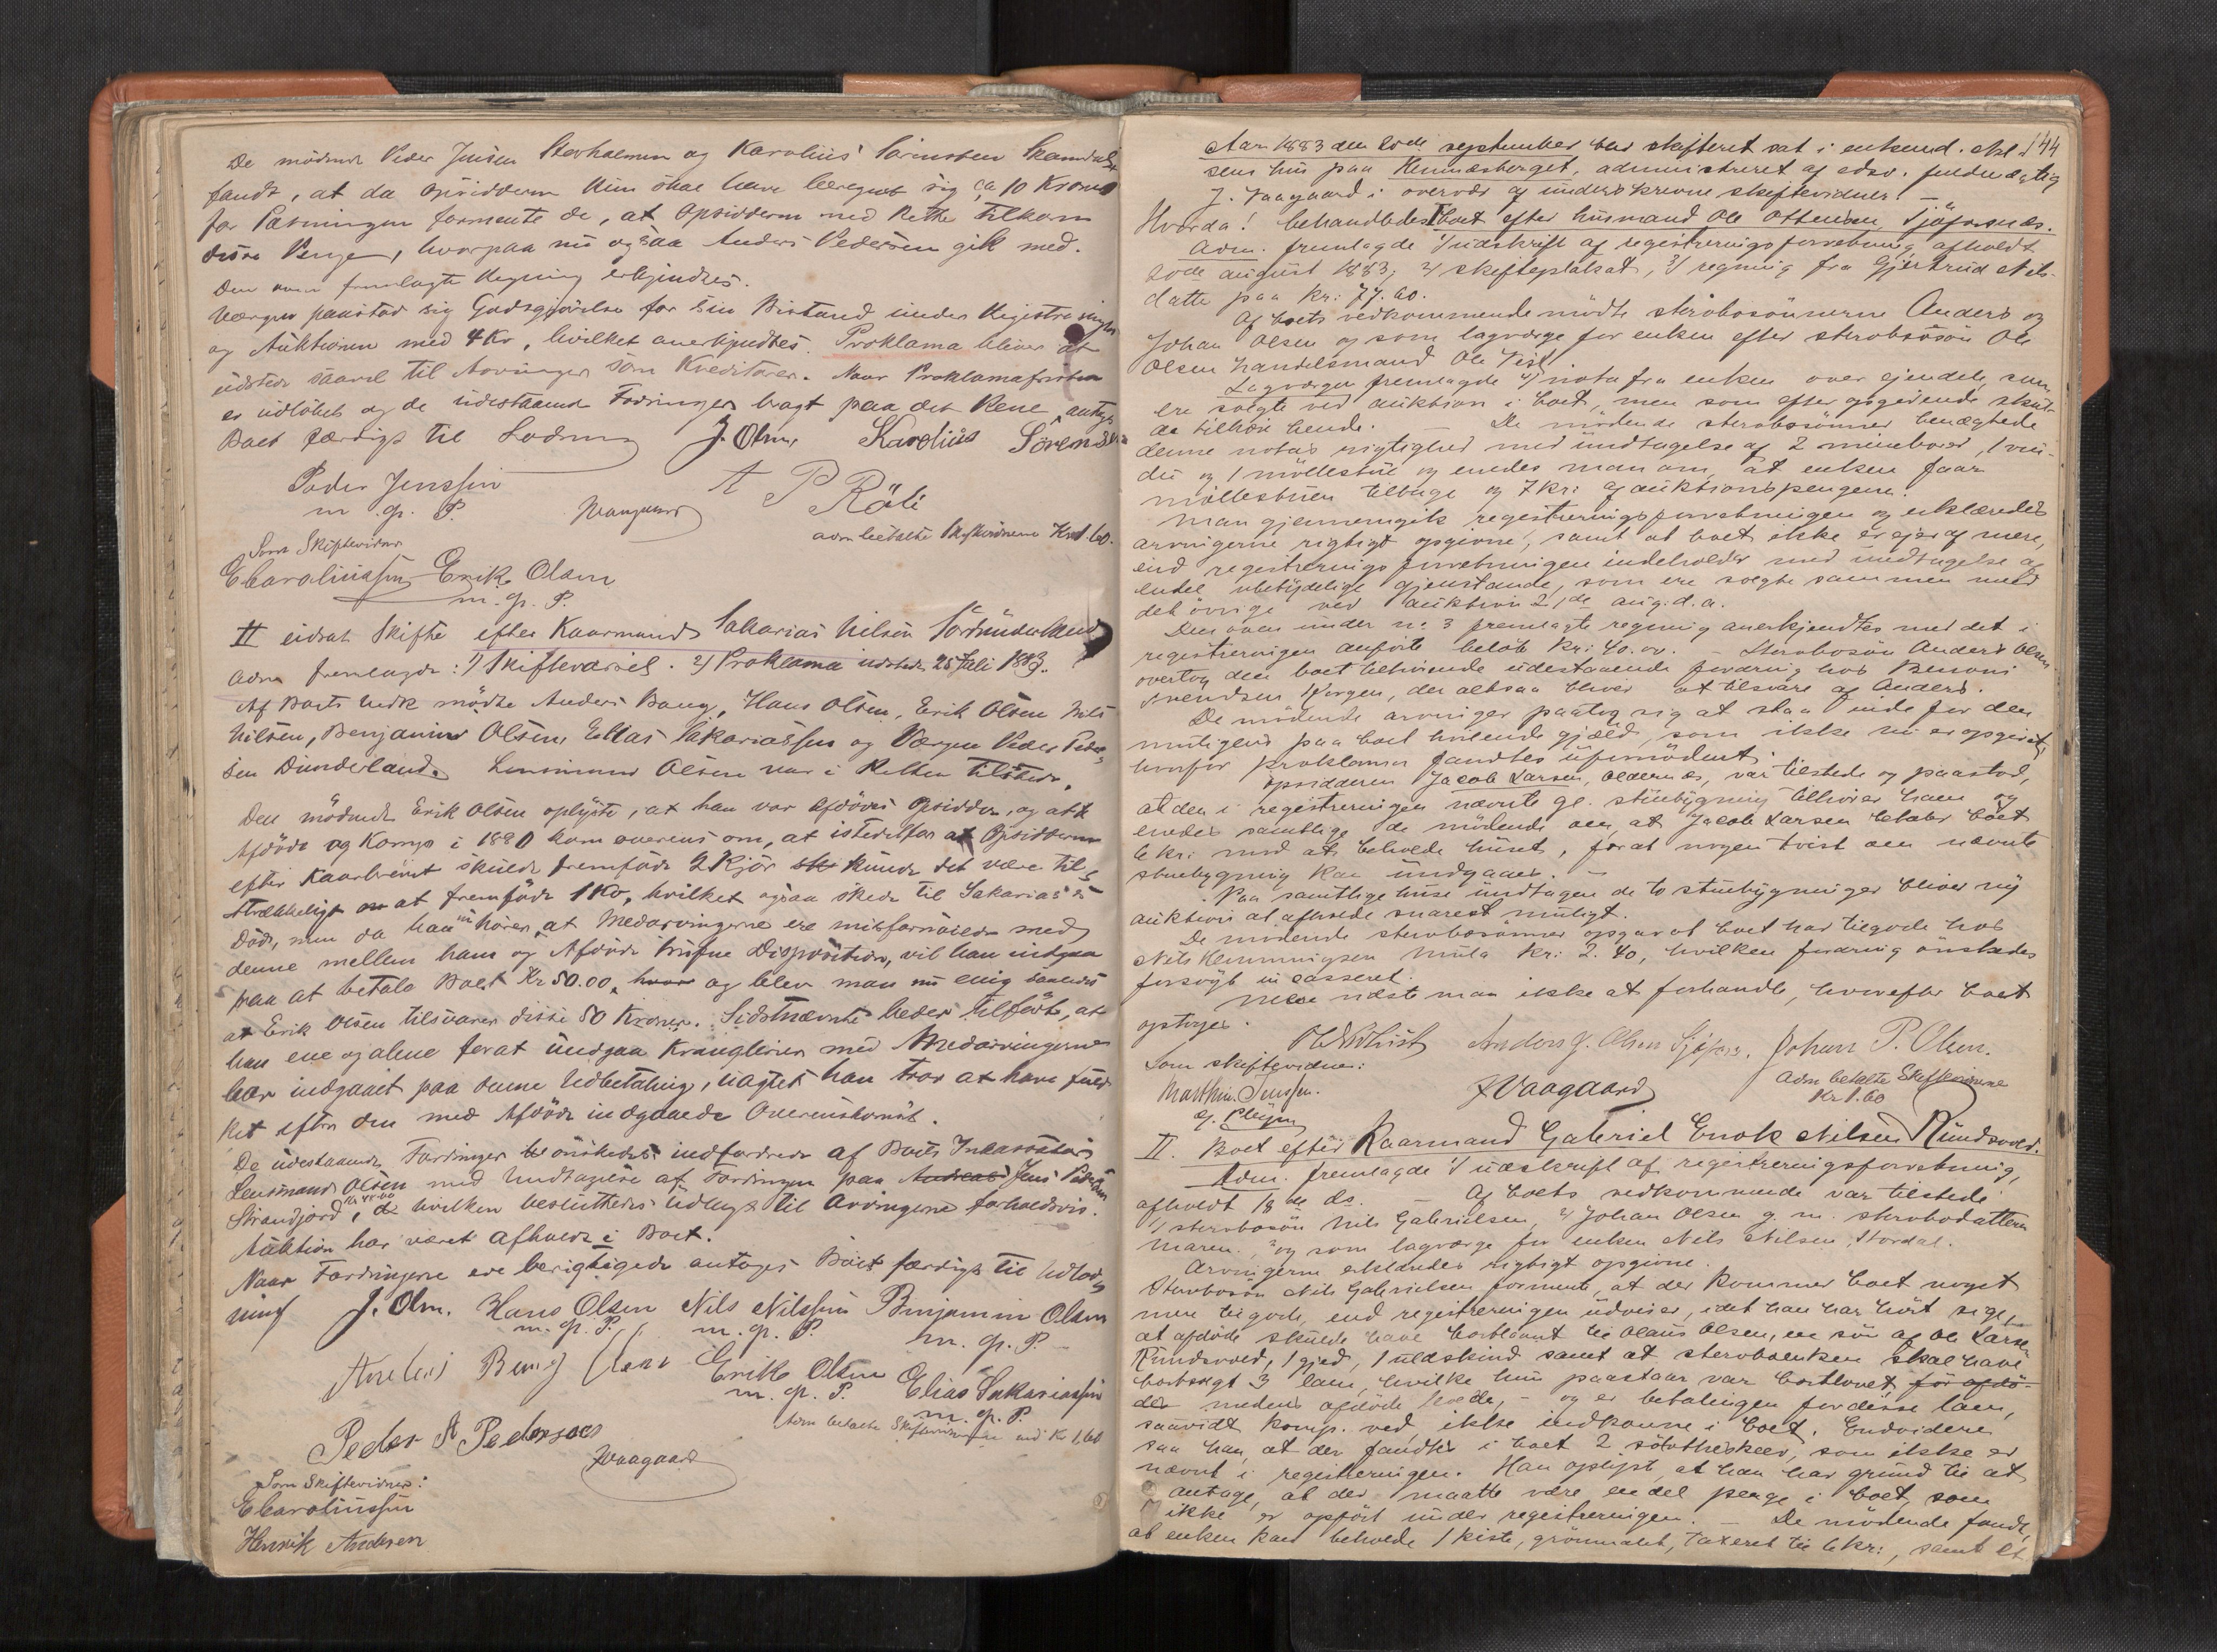 De mödende Peder Jensen Storholmen og Karolius Sörensen
fandt, at da Opsidderen kun skal have beregnet sig ca 10 Kroner
for Pasningen formente de, at Opsidderen med Rette tilkom
disse Penge, hvorpaa nu ogsaa Anders Pedersen gik med.
Den oven fremlagte Regning erkjendtes.
Værgen paastod sig Godtgjörelse for sin Bistand under Registreringen
og Auktionen med 4 Kr, hvilket anerkjendtes. Proklama bliver at
udstede saavel til Arvinger som Kreditorer. Naar Proklamafristen
er udlöbet og de udestaaende Fordringer bragt paa det Rene, antages
Boet færdigt til Lodning J. Olsen Karolius Sörensen
Peder Jenssen A P Röli
m. p. P. Vaagaard
adm betalte Skiftevidnerne Kr 1.60.
Som Skiftevidner
E Carolinussen Erik Olsen
m. p. P.
II eidsat Skifte efter Kaarmand Sakarias Nilsen Nordnunderland
Adm fremlagde: 1) Skiftevarsel. 2) Proklama udstedt 25 Juli 1883.
Af Boets Vedk mödte Anders Bang, Hans Olsen, Erik Olsen, Nils
Nilsen, Benjamin Olsen, Elias Sakariassen og Værgen Peder Peder-
sen Dunderland. Lensmand Olsen var i Retten tilstede.
Den mödende Erik Olsen oplyste, at han var Afdödes Opsidder, og at
Afdöde og Komp i 1880 kom overens om, at istedetfor at Opsidderen
efter Kaarbrevet skulde fremföde 2 Kjör kunde det være til-
strækkeligt at fremföde 1 Ko, hvilket ogsaa skede til Sakarias's
Död, men da han nu hörer, at Medarvingerne ere misfornöiede med
denne mellem ham og Afdöde trufne Disposition, vil han indgaa
paa at betale Boet Kr 50.00, og blev man nu enig saaledes
at Erik Olsen tilsvarer disse 50 Kroner. Sidstnævnte beder tilfört, at
han ene og alene forat undgaa Kranglerier med Medarvingerne
har indgaaet paa denne Udbetaling, uagtet han tror at have fuld
Ret efter den med Afdöde indgaaede Overenskomst.
De udestaaende Fordringer önskedes indfordrede af Boets Inkassator
Lensmand Olsen med Undtagelse af Fordringen paa Jens Pedersen
Strandjord, hvilken besluttedes udlagt til Arvingerne forholdsvis.
Auktion har været afholdt i Boet.
Naar Fordringerne ere berigtigede antages Boet færdigt til Udlod-
ning J. Olsen. Hans Olsen Nils Nilssen Benjamin Olsen
m. p. P. m. p. P. m. p. P.
Anders Bang Erik Olsen Elias Sakariassen
m. p. P. m. p. P.
Peder Pedersen Adm betalte Skiftevidnerne med Kr 1,60
Vaagaard
Som Skiftevidner:
E Carolinussen
Henrik Andersen
144
Aar 1883 den 20de september blev skifteret sat i enkemd.
sens hus paa Hemnesberget, administreret af edsv. fuldmægtig
J. Vaagaard i overvær af underskrevne skiftevidner. –
Hvorda! behandledes I boet efter husmand Ole Ottesen, Sjöforsnes.
Adm. fremlagde 1/ udskrift af registreringsforretning afholdt
20de august 1883; 2/ skifteplakat, 3/ regning fra Gjertrud Nils-
datter paa Kr: 77.60.
Af boets vedkommende mödte sterbosönnerne Anders og
Johan Olsen og som lagværge for enken efter sterbosösön Ole
Olsen handelsmand Ole Qvist.
Lagværgen fremlagde 4/ nota fra enken over ejendele, som
ere solgte ved auktion i boet, men som efter opgivende skul-
de tilhöre hende. – De mödende sterbosönner benægtede
denne notas rigtighed med undtagelse af
og 1 möllestue og enedes man om, at enken faar
möllestuen tilbage og 7 kr: af auktionspengene.
Man gjennemgik registreringsforretningen og erklæredes
arvingerne rigtigt opgivne, samt at boet ikke er ejer af mere,
end registreringsforretningen indeholder med undtagelse af
endel ubetydelige gjenstande, som ere solgte sammen med
det övrige ved auktion 21de aug. d. a.
Den oven under no 3 fremlagte regning anerkjendtes med det i
registreringen anförte belöb Kr: 40.00. – Sterbosön Anders Olsen
overtog den boet tilhörende udestaaende fordring hos Benoni
Svendsen, der altsaa bliver at tilsvare af Anders.
De mödende arvinger paatog sig at staa inde for den
muligens paa boet hvilende gjæld, som ikke nu er opgivet,
hvorfor proklama fandtes ufornödent.
Opsidderen Jacob Larsen, Oldernes, var tilstede og paastod,
at den i registreringen nævnte gl. stuebygning tilhörer ham og
enedes samtlige de mödende om, at Jacob Larsen betaler boet
6 kr: mod at beholde huset, forat nogen tvist om nævnte
stuebygning kan undgaaes. –
Paa samtlige huse undtagen de to stuebygninger bliver ny
auktion at afholde snarest muligt.
De mödende sterbosönner opgav at boet har tilgode hos
Nils Hemmingsen Kr: 2.40, hvilken fordring önskedes
forsögt incasseret.
Mere vidste man ikke at forhandle, hvorefter boet
optoges.
Anders J. Olsen Sjöfors. Johan P. Olsen.
Som skiftevidner:
Matthias Jenssen. JVaagaard Adm betalte Skiftevidnerne
Kr 1.60
II. Boet efter Kaarmand Gabriel Enok Nilsen Rundsvold.
Adm. fremlagde 1/ udskrift af registreringsforretning,
afholdt 18de ds. – Af boets vedkommende var tilstede
1/ sterbosön Nils Gabrielsen, 2/ Johan Olsen g. m. sterbodatteren
Maren, 3/ og som lagværge for enken Nils Nilsen, Stordal.
Arvingerne erklærdes rigtigt opgivne.
Sterbosön Nils Gabrielsen formente, at der kommer boet noget
mere tilgode, end registreringen udviser, idet han har hört sige,
at afdöde skulde have bortlaant til Olaus Olsen, en sön af Ole Larsen
Rundsvold, 1 gjed, 1 uldskind samt at sterboenken skal have
bortsolgt 3 lam, hvilke hun paastaar var bortlovet för afdö-
de medens afdöde levede, – og er betalingen for disse lam,
saavidt komp. ved, ikke indkomne i boet. Endvidere
saa han, at der fandtes i boet 2 sölvtheskeer, som ikke er
nævnt i registreringen. Han oplyste, at han har grund til at
antage, at der maatte være endel penge i boet, som
ikke er opfört under registreringen. – De mödende fandt,
at enken kan beholde 1 kiste, grönmalet, taxeret til 6 kr:, samt et